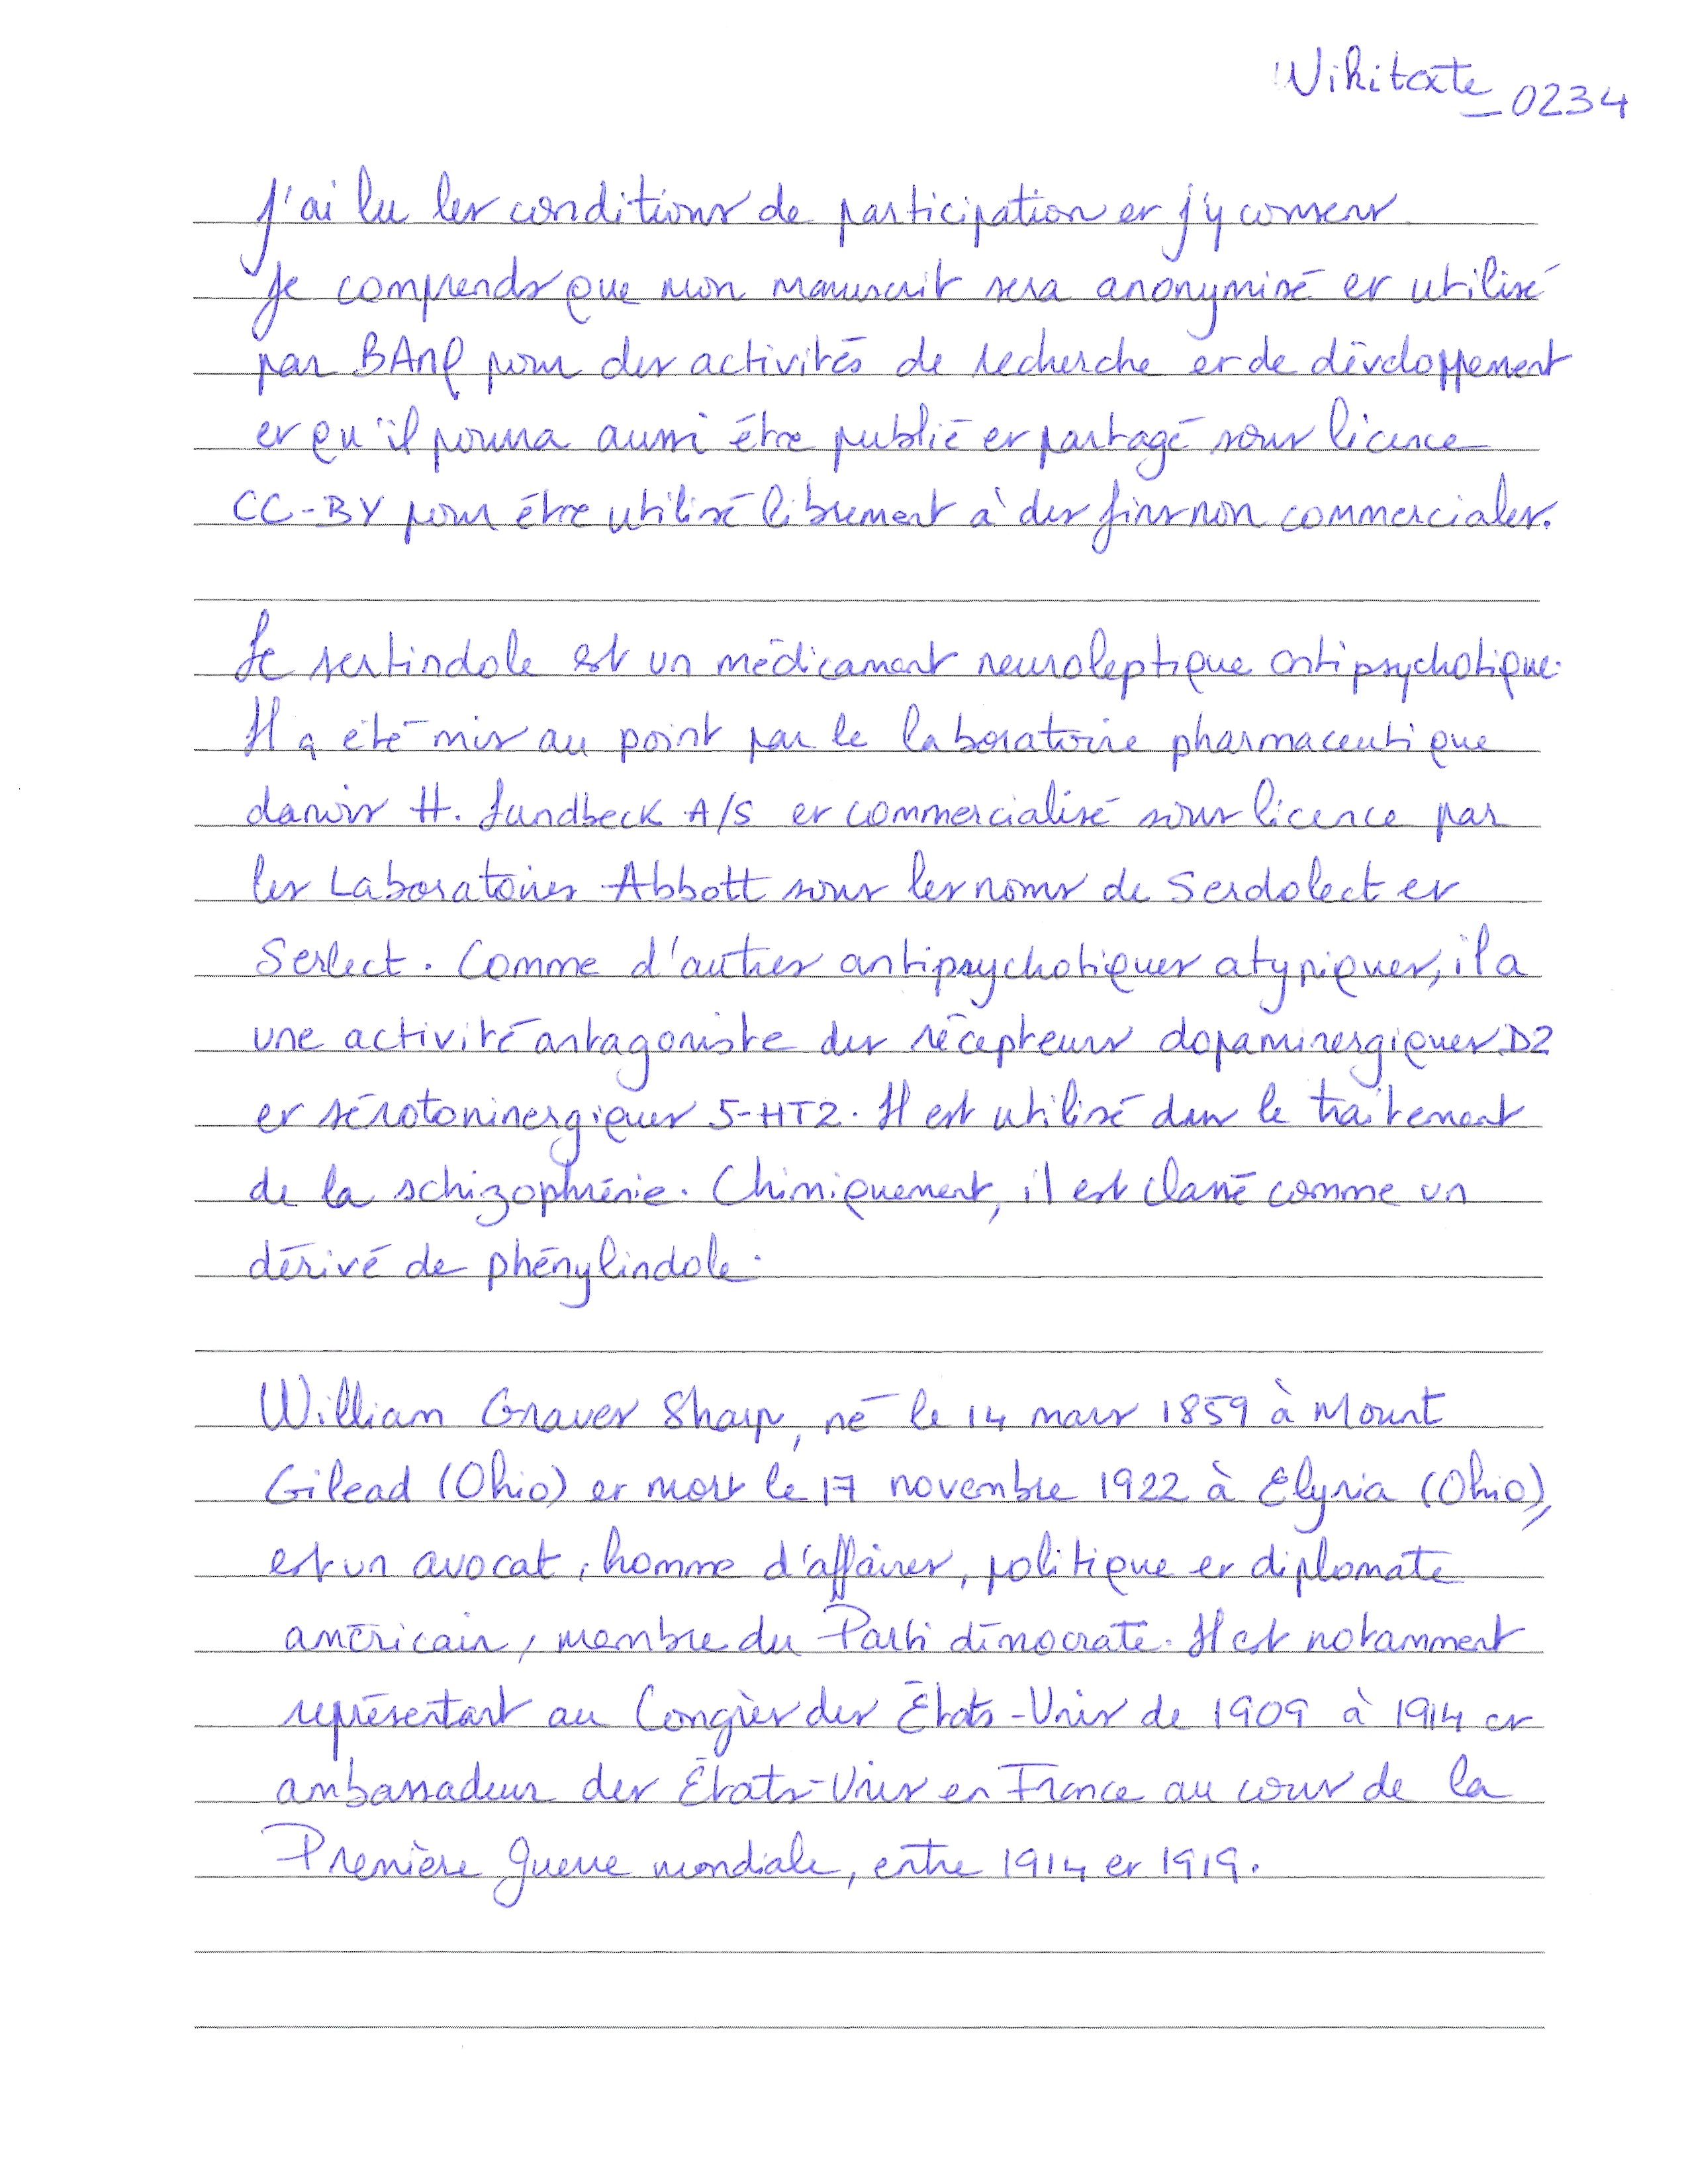 Wikitexte_0234
J'ai lu les conditions de participation et j'y consens
Je comprends que mon manuscrit sera anonymisé et utilisé
par BAnQ pour des activités de recherche et de développement
et qu'il pourra aussi être publié et partagé sous licence
CC-BY pour être utilisé librement à des fins non commerciales.
Le sertindole est un médicament neuroleptique antipsychotique.
Il a été mis au point par le laboratoire pharmaceutique
danois H. Lundbeck A/S et commercialisé sous licence par
les Laboratoires Abbott sous les noms de Serdolect et
Serlect. Comme d'autres antipsychotiques atypiques, il a
une activité antagoniste des récepteurs dopaminergiques D2
et sérotoninergiques 5-HT2. Il est utilisé dans le traitement
de la schizophrénie. Chimiquement, il est classé comme un
dérivé de phénylindole.
William Graves Sharp, né le 14 mars 1859 à Mount
Gilead (Ohio) et mort le 17 novembre 1922 à Elyria (Ohio),
est un avocat, homme d'affaires, politique et diplomate
américain, membre du Parti démocrate. Il est notamment
représentant au Congrès des États-Unis de 1909 à 1914 et
ambassadeur des États-Unis en France au cours de la
Première guerre mondiale, entre 1914 et 1919.